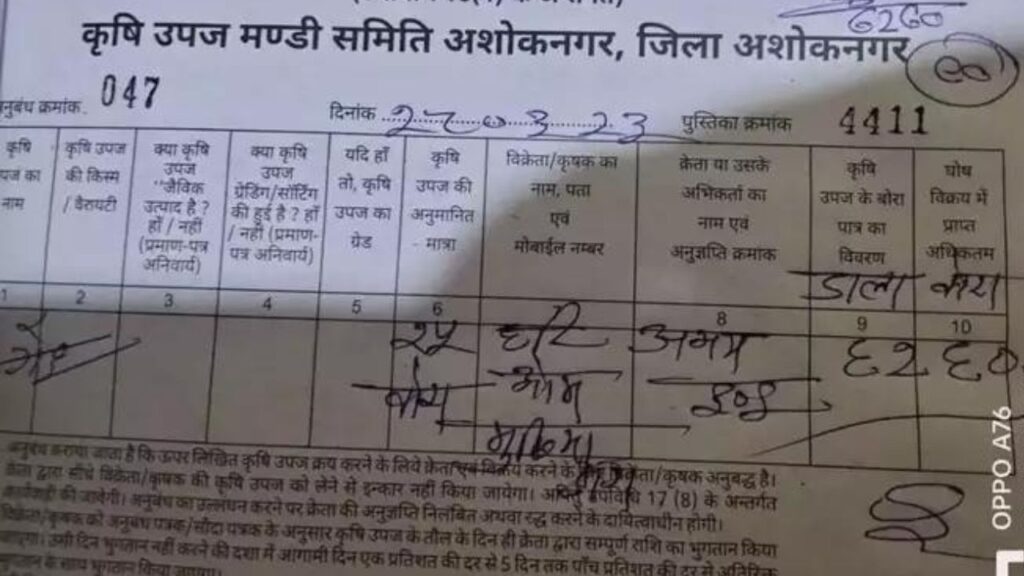 6260
कृषि उपज मण्डी समिति अशोकनगर, जिला अशोकनगर
नुबंध क्रमांक. 047
दिनांक 27 3 23
पुस्तिका क्रमांक 4411
कृषि
पज का
नाम
कृषि उपज
की किस्म
/ वैरायटी
क्या कृषि
उपज
"जैविक
उत्पाद है ?
हाँ / नहीं
(प्रमाण-पत्र
अनिवार्य)
क्या कृषि
उपज
ग्रेडिंग/सॉर्टिंग
की हुई है ? हाँ
/ नहीं (प्रमाण-
पत्र अनिवार्य)
यदि हाँ
तो, कृषि
उपज का
ग्रेड
कृषि
उपज की
अनुमानित
मात्रा
विक्रेता/कृषक का
नाम, पता
एवं
मोबाईल नम्बर
क्रेता या उसके
अभिकर्ता का
नाम एवं
अनुज्ञप्ति क्रमांक
कृषि
उपज के बोरा
पात्र का
विवरण
डाला
घोष
विक्रय में
प्राप्त
अधिकतम
1 2 3 4 5 6 8 9 10
२५ हरि ६२६०
ओम
अनुबंध कराया जाता है कि ऊपर लिखित कृषि उपज क्रय करने के लिये क्रेता एवं विक्रय करने के क्रेता/कृषक अनुबद्ध है।
क्रेता द्वारा सीधे विक्रेता/कृषक की कृषि उपज को लेने से इन्कार नहीं किया जायेगा। 17 (8) के अन्तर्गत
कार्यवाही की जावेगी। अनुबंध का उल्लंघन करने पर क्रेता की अनुज्ञप्ति निलंबित अथवा रद्ध करने के दायित्वाधीन होगी।
विक्रेता/कृषक को अनुबंध पत्रक/सौदा पत्रक के अनुसार कृषि उपज के तौल के दिन ही क्रेता द्वारा सम्पूर्ण राशि का भुगतान किया
जाएगा। उसी दिन भुगतान नहीं करने की दशा में आगामी दिन एक प्रतिशत की दर से 5 दिन तक पाँच प्रतिशत की दर से अतिरिक्त
OPPO A76